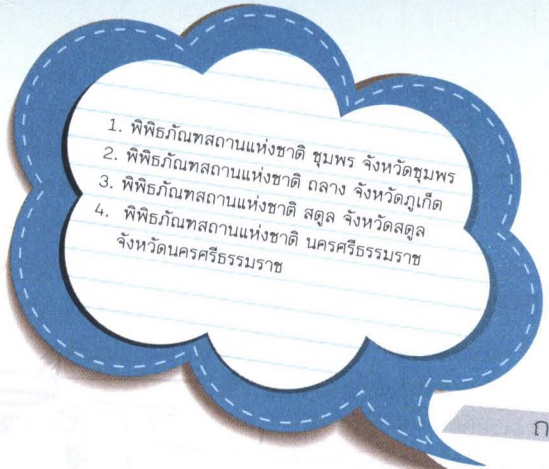 1. พิพิธภัณฑสถานแห่งชาติ ชุมพร จังหวัดชุมพร
2. พิพิธภัณฑสถานแห่งชาติ ถลาง จังหวัดภูเก็ต
3. พิพิธภัณฑสถานแห่งชาติ สตูล จังหวัดสตูล
4. พิพิธภัณฑสถานแห่งชาติ นครศรีธรรมราช
จังหวัดนครศรีธรรมราช